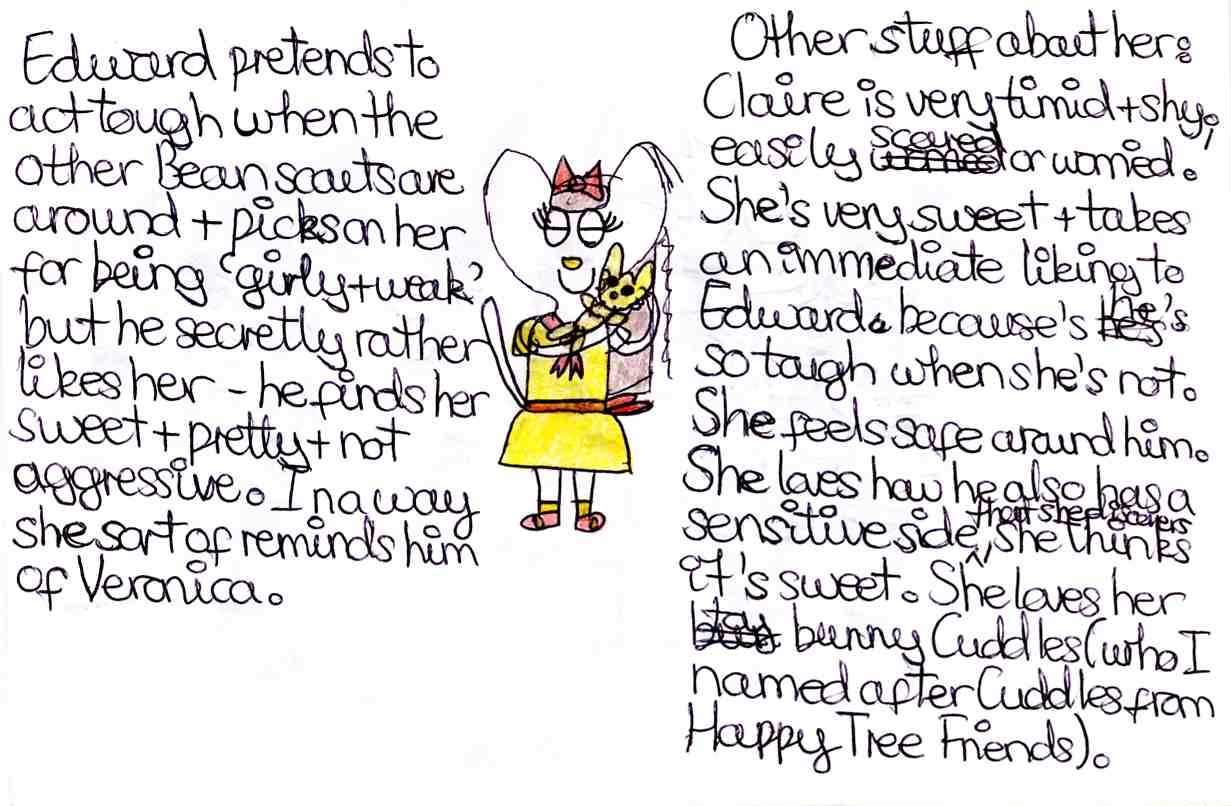 Edward pretends to
act tough when the
other Bean scouts are
around + picks on her
for being 'girly + weak'
but he secretly rather
likes her - he finds her
sweet + pretty + not
aggressive. In a way
she sort of reminds him
of Veronica.
Other stuff about her:
Claire is very timid + shy;
easily scared or worried.
She's very sweet + takes
an immediate liking to
Edward because's he's
so tough when she's not.
She feels safe around him.
She loves how he also has a
sensitive side, that she discovers she thinks
it's sweet. She loves her
toy bunny Cuddles (who I
named after Cuddles from
Happy Tree Friends).